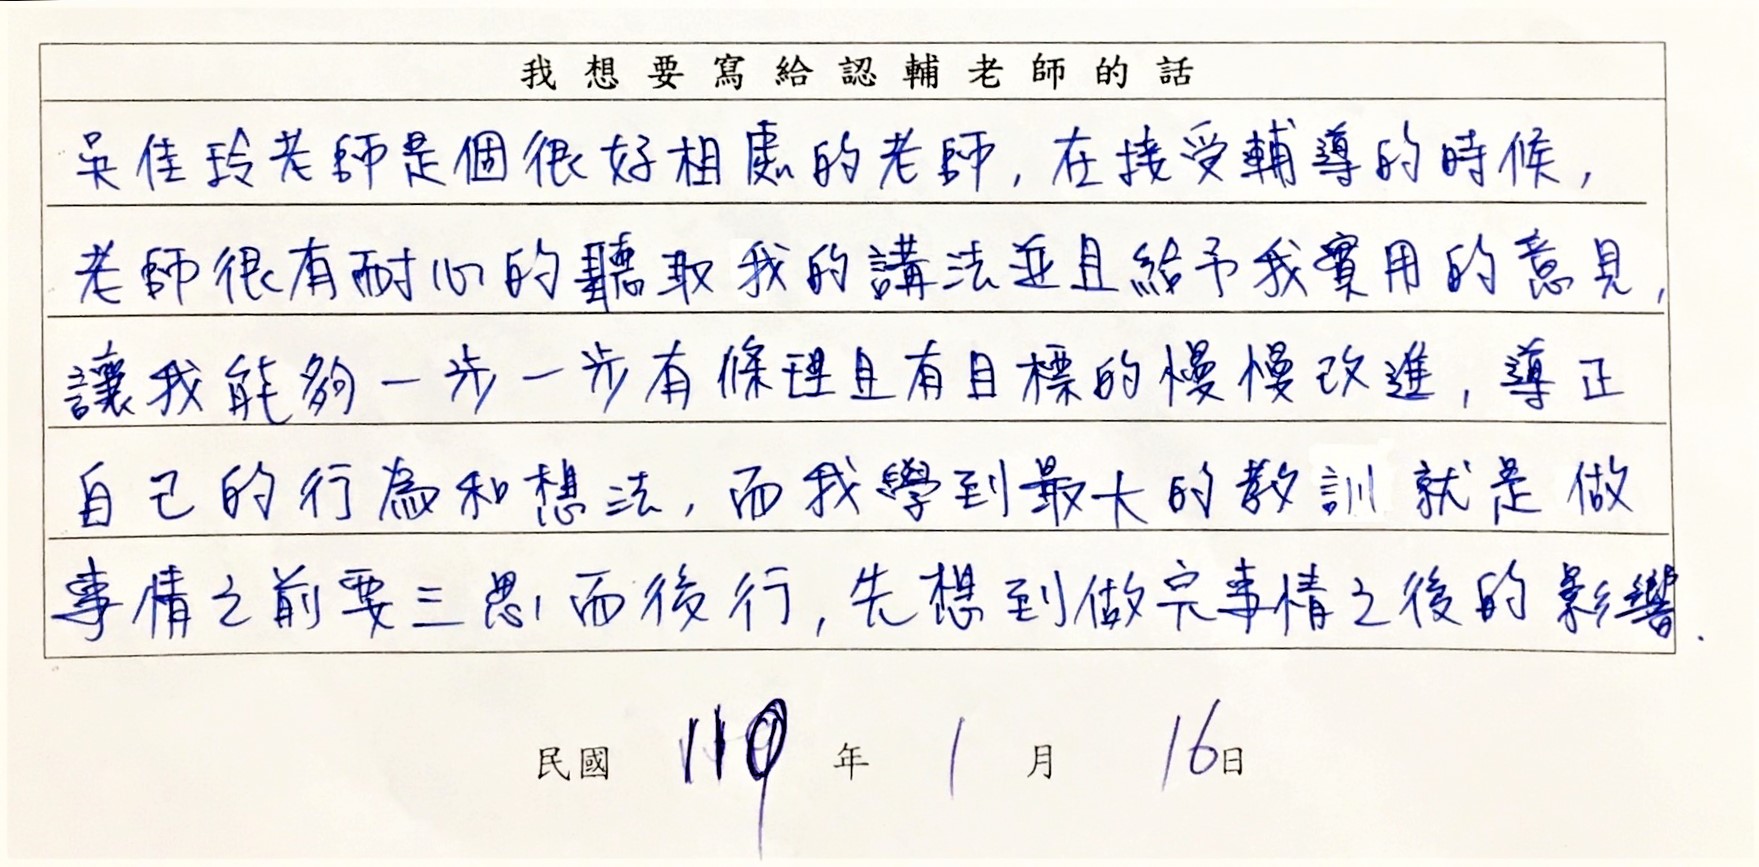 我想要寫給認輔老師的話
吳佳玲老師是個很好相處的老師，在接受輔導的時候，
老師很有耐心的聽取我的講法並且給予我實用的意見，
讓我能夠一步一步有條理且有目標的慢慢改進，導正
自己的行為和想法，而我學到最大的教訓就是做
事情之前要三思而後行，先想到做完事情之後的影響.
民國 年 1 月 16日